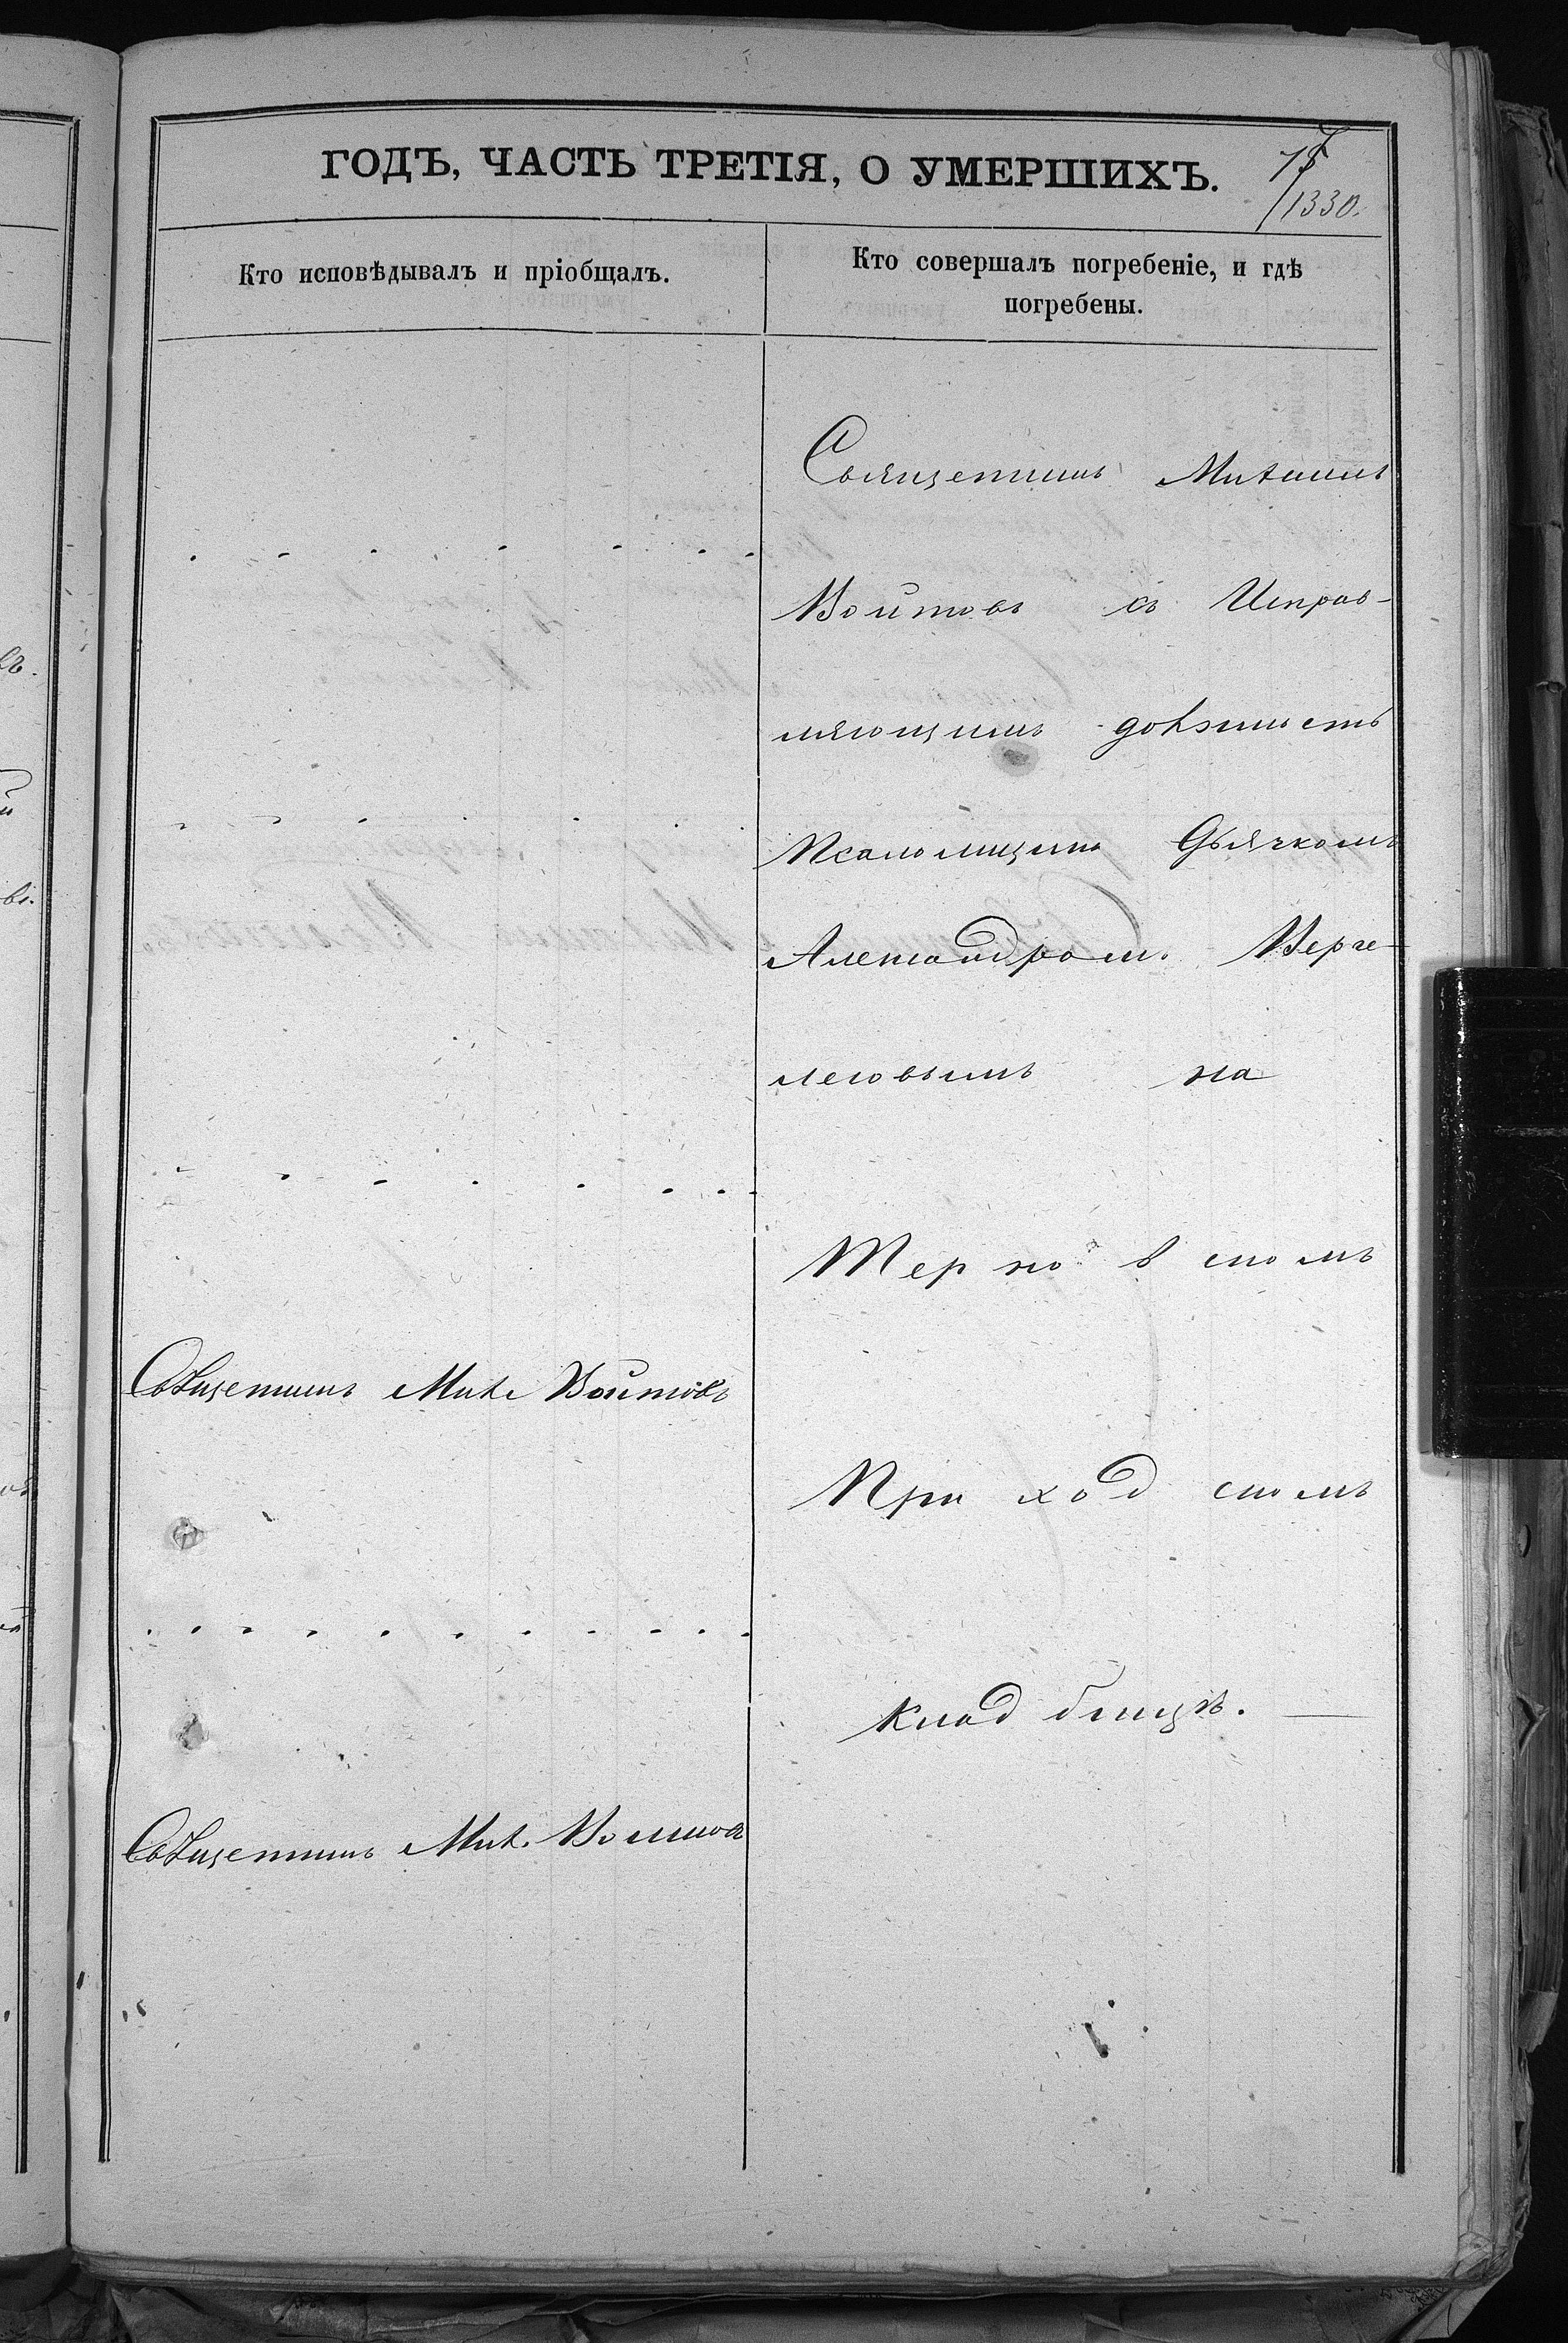 ГОДЪ, ЧАСТЬ ТРЕТІЯ, О УМЕРШИХЪ.
1330.
Кто исповѣдывалъ и пріобщалъ.
Кто совершалъ погребеніе, и гдѣ
погребены.
Священникъ Михаилъ
Войтовъ съ Исправ-
ляющимъ должность
Псаломщика Дьячкомъ
Александромъ
на
Терновскомъ
Священникъ Мих. Войтовъ
Приходскомъ
кладбищѣ.
Священникъ Мих. Войтовъ